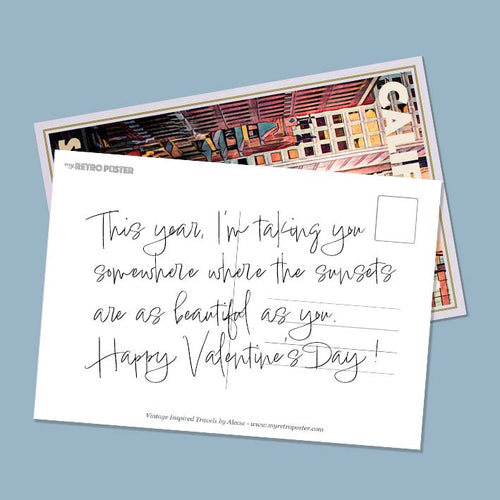 CALIF
my RETRO POSTER
This year, I'm taking you
somewhere where the sunsets
are as beautiful as you.
Happy Valentine's Day!
Vintage Inspired Travels by Alecse - www.myretroposter.com